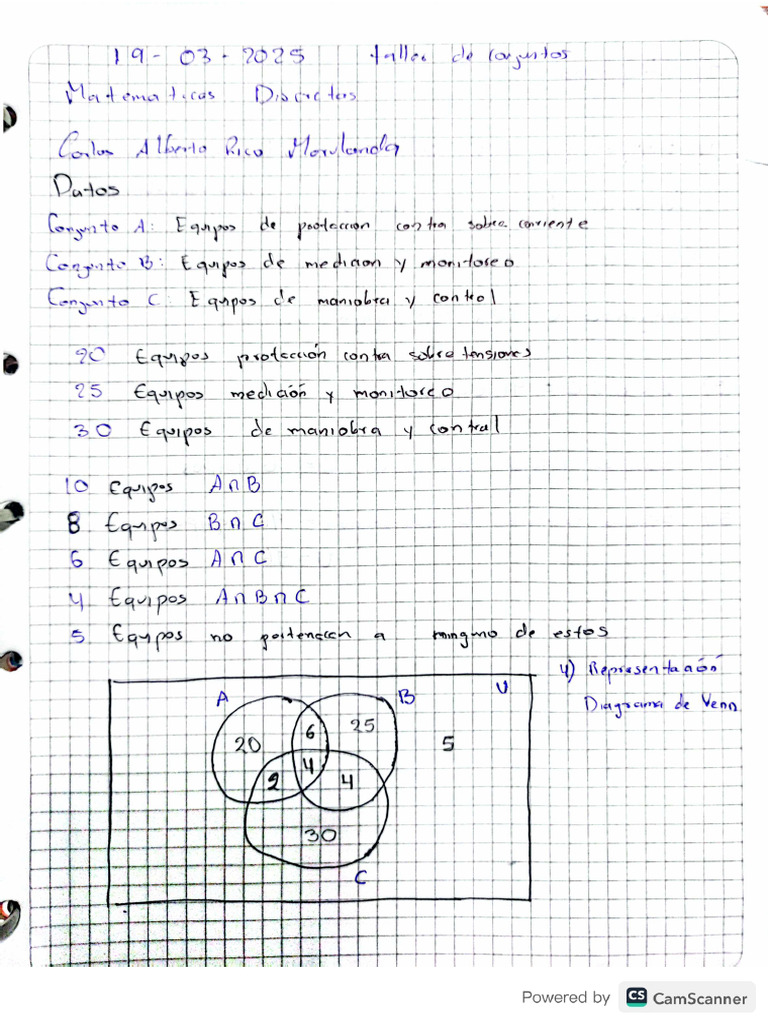 19-03-2025 taller de conjuntos
Matematicas Discretas
Carlos Alberto Rico Marulanda
Datos
Conjunto A: Equipos de proteccion contra sobre corriente
Conjunto B: Equipos de medicion y monitoreo
Conjunto C: Equipos de maniobra y control
20 Equipos protección contra sobretensiones
25 Equipos medición y monitoreo
30 Equipos de maniobra y control
10 Equipos A∩B
8 Equipos B∩C
6 Equipos A∩C
4 Equipos A∩B∩C
5 Equipos no pertenecen a ningno de estos
4) Representación
Diagrama de Venn
A B U
20 6 25 5
2 4 4
30
C
Powered by CS CamScanner